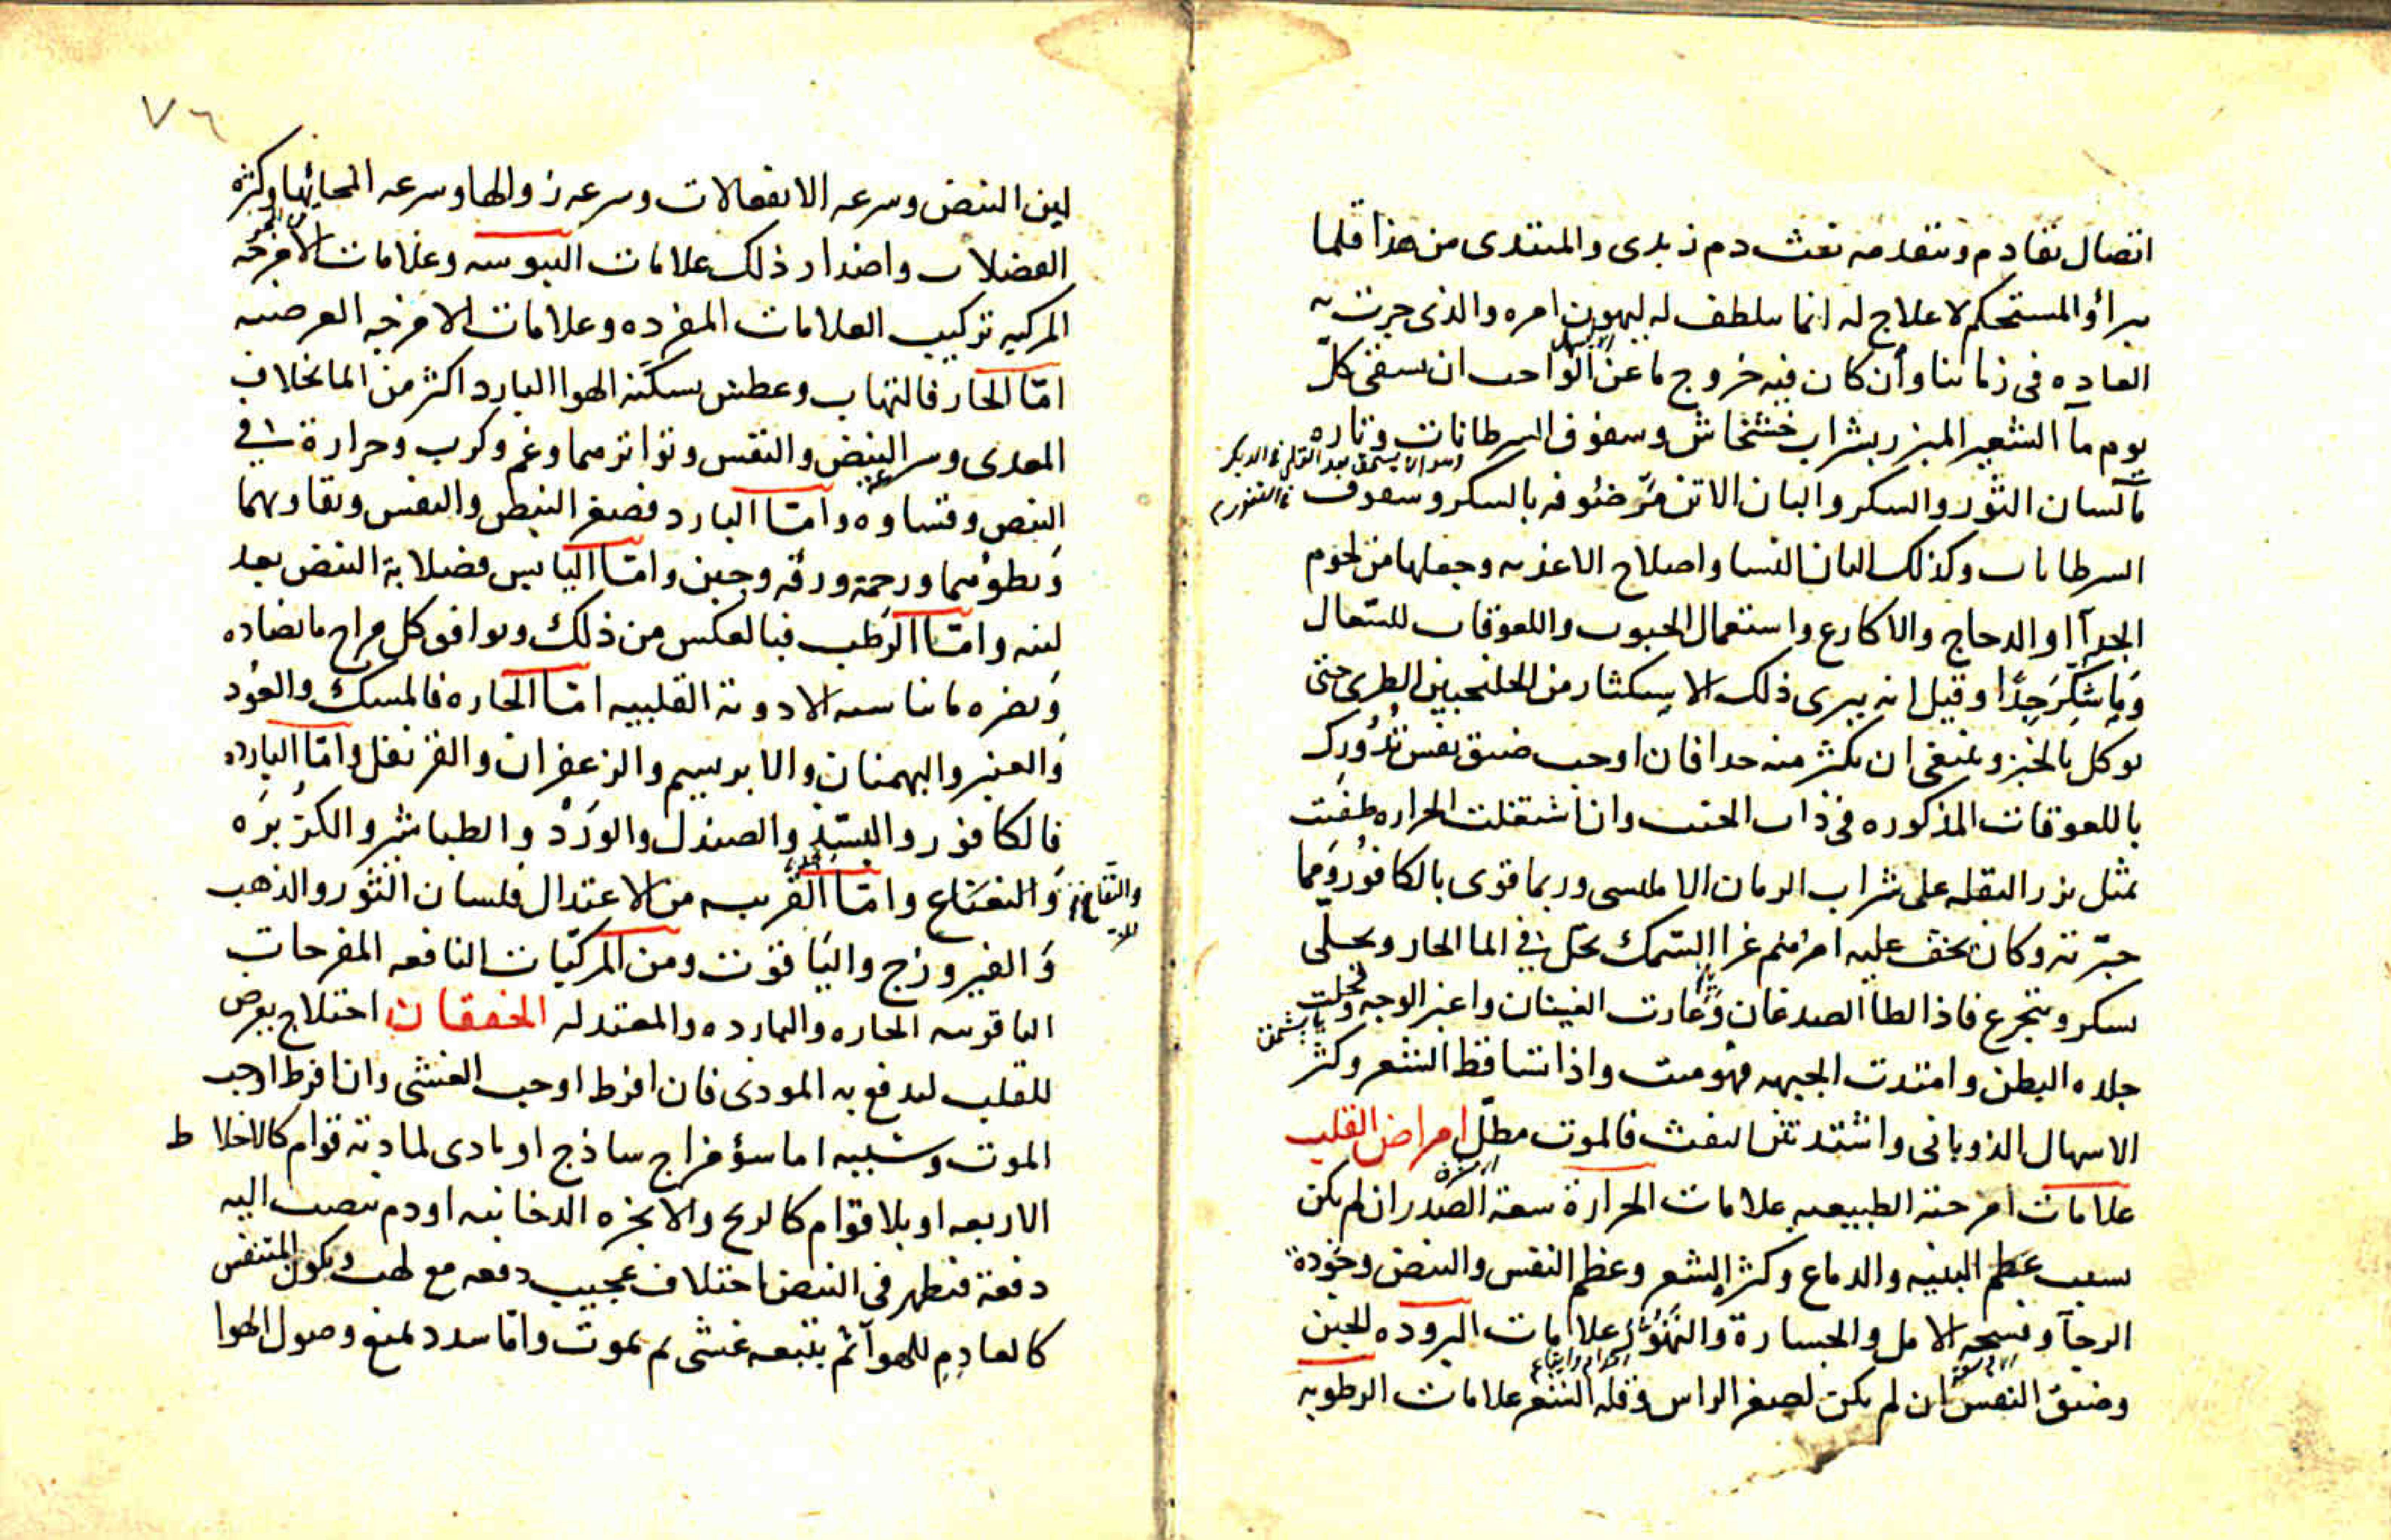 اتصال تقادم وتتقدمه نفث دم زبدى والمبتدى من هذا قلما
يبرأ والمستحكم لا علاج له انما يتلطف له ليهون امره والذى جرت به
العاده فى زماننا وأن كان فيه خروج ما عن الواجب ان يسقى كلّ
يوم مآ الشعير المبزر بشراب خشخاش وسفوف السرطانات وتاره
مآ لسان الثور والسكر والبان الاتن بالسكر وسفوف
السرطانات وكذلك البان النسا واصلاح الاغذيه وجعلها من لحوم
الجدآ او الدجاج والاكارع واستعمال الحبوب واللعوقات للسّعال
جدًا وقيل انه يبرى ذلك الاستكثار من الجلنجبين الطرى حتى
يوكل بالخبز وينبغى ان يكثر منه جدا فان اوجب ضيق نفس تُدُورِك
باللعوقات المذكوره فى ذات الجنب وان اشتعلت الحراره طفيت
بمثل بزر البقله على شراب الرمان الامليسى وربما قوى بالكافور ومما
جبّرته وكان يخف عليه امرهم غرا السّمك يحَلّ فى الما الحار ويحلّى
بسكر ويتجرع فاذا لطا الصدغان وغارت العينان واغبر الوجه وقحلت
جلده البطن وامتدت الجبهه فهو ميت واذا تساقط الشعر وكثر
الاسهال الذوبانى واشتد نتن النفث فالموت مطلّ امراض القلب
علامات امزجته الطبيعيه علامات الحرارة سعة الصدر ان لم يكن
بسبب عظم البنيه والدماغ وكثرة الشعر وعظم النفس والنبض وجودة
الرجآ وفسحه الامل والجسارة والتهوّر علامات البروده الجبن
وضيق النفس ان لم يكن لصغر الراس وقله الشعر علامات الرطوبه
٧٦
لين النبض وسرعه الانفعالات وسرعه زوالها وسرعه وكثره
الفضلات واضداد ذلك علامات اليبوسه وعلامات الامزجه
المركبه تركيب العلامات المفرده وعلامات الامزجه العرضيه
امّا الحار فالتهاب وعطش يسكنه الهوا البارد اكثر من الما بخلاف
المعدى وسرعة النبض والنفس وتواترهما وغم وكرب وحرارة فى
وقساوه وامّا البارد فصغر النبض والنفس وتفاوتهما
وبطؤهما ورحمة ورقه وجبن وامّا اليابس فصلابة النبض بعد
لينه وامّا الرَطب فبالعكس من ذلك ويوافق كل مزاج ما يضاده
ويضره ما يناسبه الادوية القلبيه امّا الحاره فالمسك والعود
والعنبر والبهمنان والابريسم والزعفران والقرنفل وامّا البارده
فالكافور والبسّذ والصندل والورد والطباشير والكزبرَه
والتفاح وامّا القريبه من الاعتدال فلسان الثور والذهب
والفيروزج والياقوت ومن المركبّات النافعه المفرحات
الياقوتيه الحاره والبارده والمعتدله الخفقان اختلاج يعرض
للقلب ليدفع به الموذى فان افرط اوجب الغشى وان افرط اوجب
الموت وسببه اما سؤ مزاج ساذج او مادى لمادته قوام كالاخلاط
الاربعه او بلا قوام كالريح والابخره الدخانيه او دم ينصب اليه
دفعة فتظهر فى النبض اختلاف عجيب دفعه مع لهب ويكون المتنفس
كالعادِم للهوآ ثم يتبعه غشى ثم يموت وامّا سدد يمنع وصول الهوا